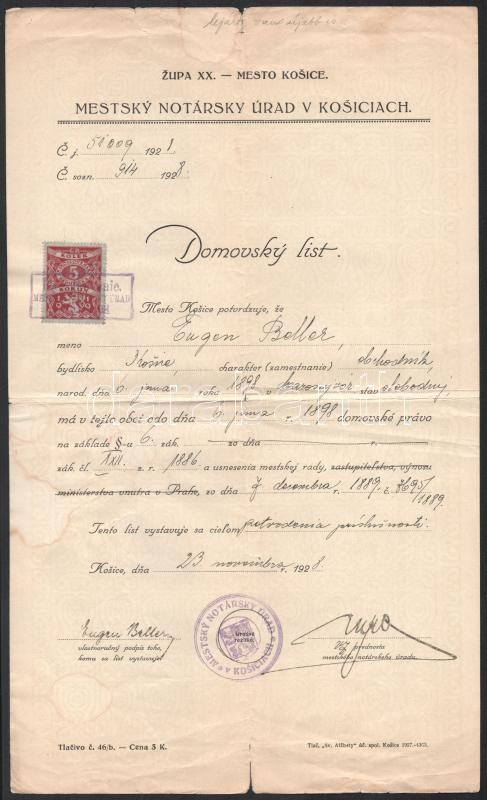 ŽUPA XX. — MESTO KOŠICE.
MESTSKÝ NOTÁRSKY ÚRAD V KOŠICIACH.
Č. j. 51009 1928.
Č. sozn. 914 1928.
Domovský list.
5
KORUN
Mesto Košice potvrdzuje, že
meno Eugen Beller,
bydlisko Košice, charakter (zamestnanie) obchodník,
narod. dňa 6. juna roku 1898 v stav slobodný
má v tejto obci odo dňa 6. juna r. 1898 domovské právo
na základe §-a 6. zák. zo dňa r.
zák. čl. XXII. z. r. 1886 a usnesenia mestskej rady, zastupiteľstva, výnosu
ministerstva vnutra v Prahe, zo dňa 7. decembra r. 1889. č. 7695/1889.
Tento list vystavuje sa cieľom potvrdenia príslušnosti.
Košice, dňa 23. novembra r. 1928.
Eugen Beller
vlastnoručný podpis toho,
komu sa list vystavuje
MESTSKÝ NOTÁRSKY ÚRAD V KOŠICIACH
prednosta
mestského notárskeho úradu.
Tlačivo č. 46/b. — Cena 5 K.
Tlač. „Sv. Alžbety" úč. spol. Košice 1927.
darabanth